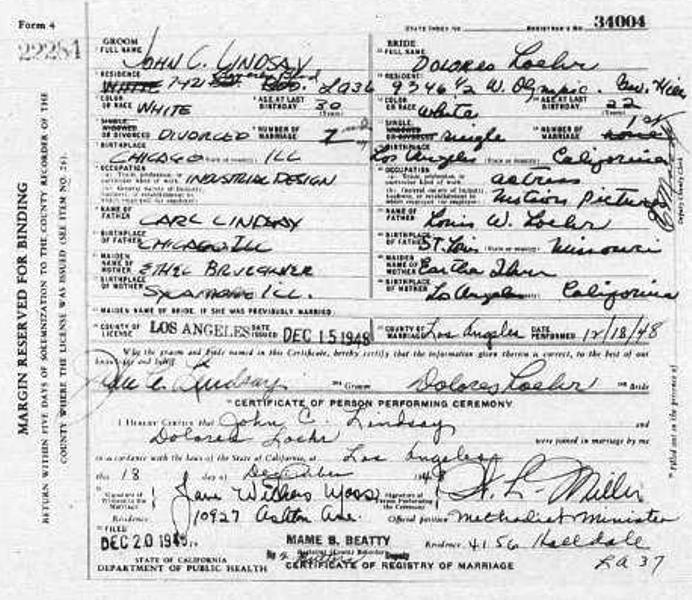 Form 4
34004
22281
GROOM
FULL NAME JOHN C. LINDSAY
BRIDE
FULL NAME Dolores Loehr
RESIDENCE 742 Blvd LA36
RESIDENCE 9346 1/2 W. Olympic. Bev. Hills
COLOR OR RACE WHITE AGE AT LAST BIRTHDAY 30 (Years)
COLOR OR RACE White AGE AT LAST BIRTHDAY 22 (Years)
SINGLE, WIDOWED OR DIVORCED DIVORCED NUMBER OF MARRIAGE 2
SINGLE, WIDOWED OR DIVORCED single NUMBER OF MARRIAGE 1st
BIRTHPLACE CHICAGO (State or country) ILL
BIRTHPLACE Los Angeles (State or country) California
OCCUPATION INDUSTRIAL DESIGN
OCCUPATION actress
motion picture
NAME OF FATHER CARL LINDSAY
NAME OF FATHER Louis W. Loehr
BIRTHPLACE OF FATHER CHICAGO ILL
BIRTHPLACE OF FATHER St. Louis (State or country) Missouri
MAIDEN NAME OF MOTHER ETHEL BRUECKNER
MAIDEN NAME OF MOTHER Eartha
BIRTHPLACE OF MOTHER SYCAMORE ILL.
BIRTHPLACE OF MOTHER Los Angeles California
MAIDEN NAME OF BRIDE, IF SHE WAS PREVIOUSLY MARRIED
COUNTY OF LICENSE LOS ANGELES DATE ISSUED DEC 15 1948
COUNTY OF MARRIAGE Los Angeles DATE PERFORMED 12/18/48
We, the groom and bride named in this Certificate, hereby certify that the information given therein is correct, to the best of our
knowledge and belief.
Lindsay Groom Dolores Loehr Bride
CERTIFICATE OF PERSON PERFORMING CEREMONY
I HEREBY CERTIFY that John C. Lindsay and
Dolores Loehr were joined in marriage by me
in accordance with the laws of the State of California, at Los Angeles
this 18 day of December 1948
Signature of Witness to the Marriage Jane Withers Moss
Signature of Person Performing the Ceremony H. L. Miller
Residence 10927 Ashton Ave.
Official position Methodist Minister
FILED
DEC 20 1948
MAME B. BEATTY
Residence 4156 Halldale
LA 37
STATE OF CALIFORNIA
DEPARTMENT OF PUBLIC HEALTH
CERTIFICATE OF REGISTRY OF MARRIAGE
MARGIN RESERVED FOR BINDING
RETURN WITHIN FIVE DAYS OF SOLEMNIZATION TO THE COUNTY RECORDER OF THE
COUNTY WHERE THE LICENSE WAS ISSUED (SEE ITEM NO. 26).
Deputy County Clerk